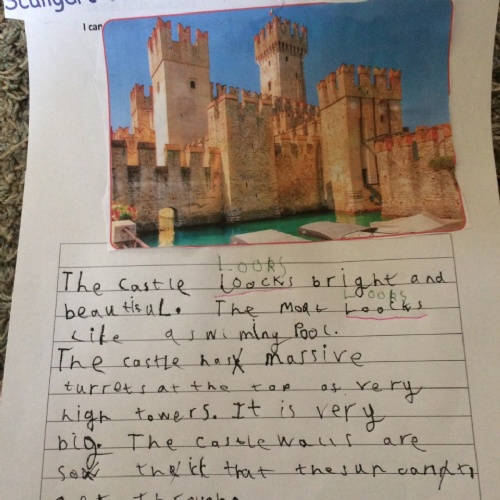 I can
LOOKS
The castle Loocks bright and
LOOKS
beautisul. The moat Loocks
Like a swiming Pool.
The castle has massive
turrets at the top of very
high towers. It is very
big. The castle walls are
so thick that the sun
get through.